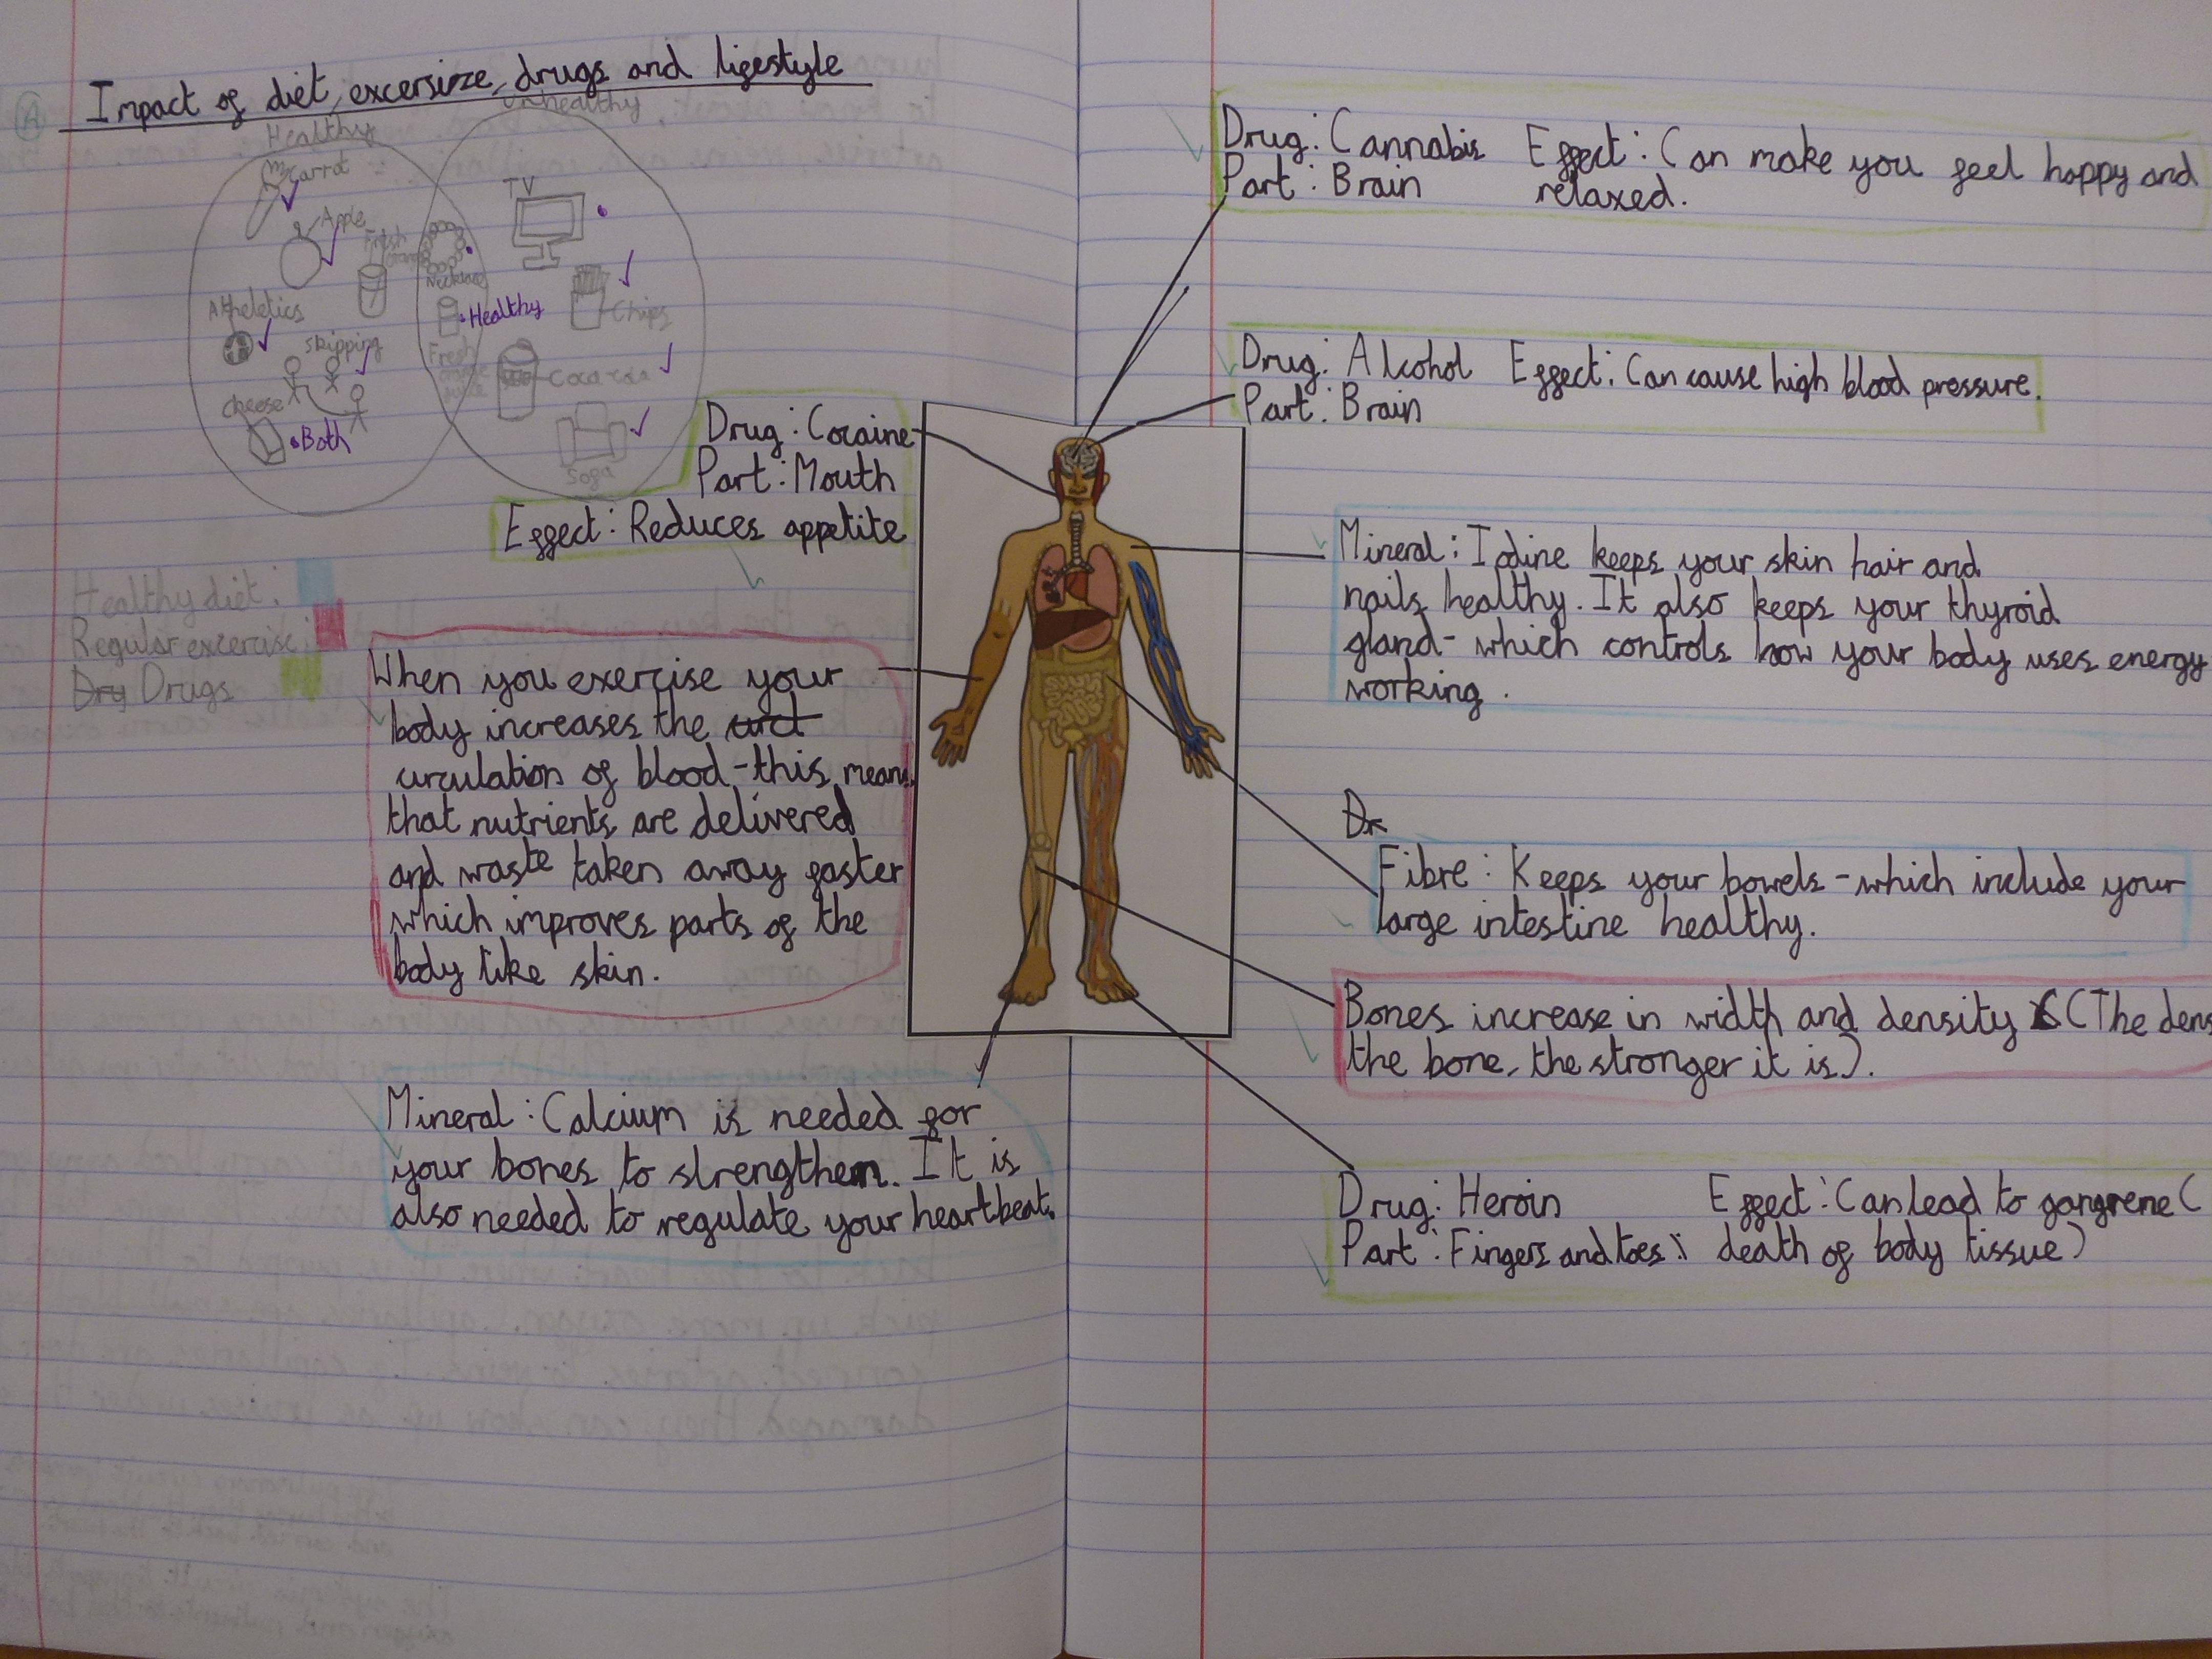 Impact of diet, excersize, drugs and ligestyle
A
Healthy
Unhealthy
Carrot
Apple
Fresh
Atheletics
Skipping
Cheese
Both
Necklace
Healthy
Fresh
orange
juice
TV
Chips
Coca cola
Soga
Drug: Cocaine
Part: Mouth
Effect: Reduces appetite
Healthy diet:
Regular excercise:
Dru Drugs
When you exercise your
body increases the circl
circulation of blood - this means
that nutrients are delivered
and waste taken away faster
which improves parts of the
body like skin.
Mineral: Calcium is needed for
your bones to strengthen. It is
also needed to regulate your heartbeat.
Drug: Cannabis Effect: Can make you feel happy and
Part: Brain relaxed.
Drug: Alcohol Effect: Can cause high blood pressure.
Part: Brain
Mineral: Iodine keeps your skin hair and
nails healthy. It also keeps your thyroid
gland - which controls how your body uses energy
working.
Dr
Fibre: Keeps your bowels - which include your
large intestine healthy.
Bones increase in width and density (The dens
the bone, the stronger it is).
Drug: Heroin Effect: Can lead to gangrene (
Part: Fingers and toes death of body tissue)